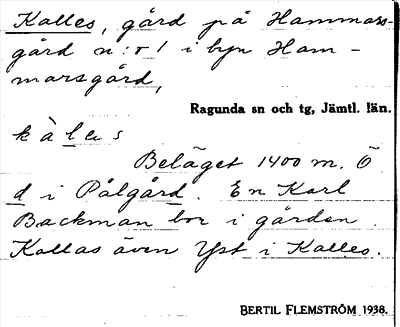 Kalles, gård på Hammars-
gård n:o 1 i byn Ham-
marsgård,
Ragunda sn och tg, Jämtl. län.
kàles
Beläget 1400 m. Ö
d i Pålgård. En Karl
Backman bor i gården.
Kallas även Yst i Kalles.
BERTIL FLEMSTRÖM 1938.